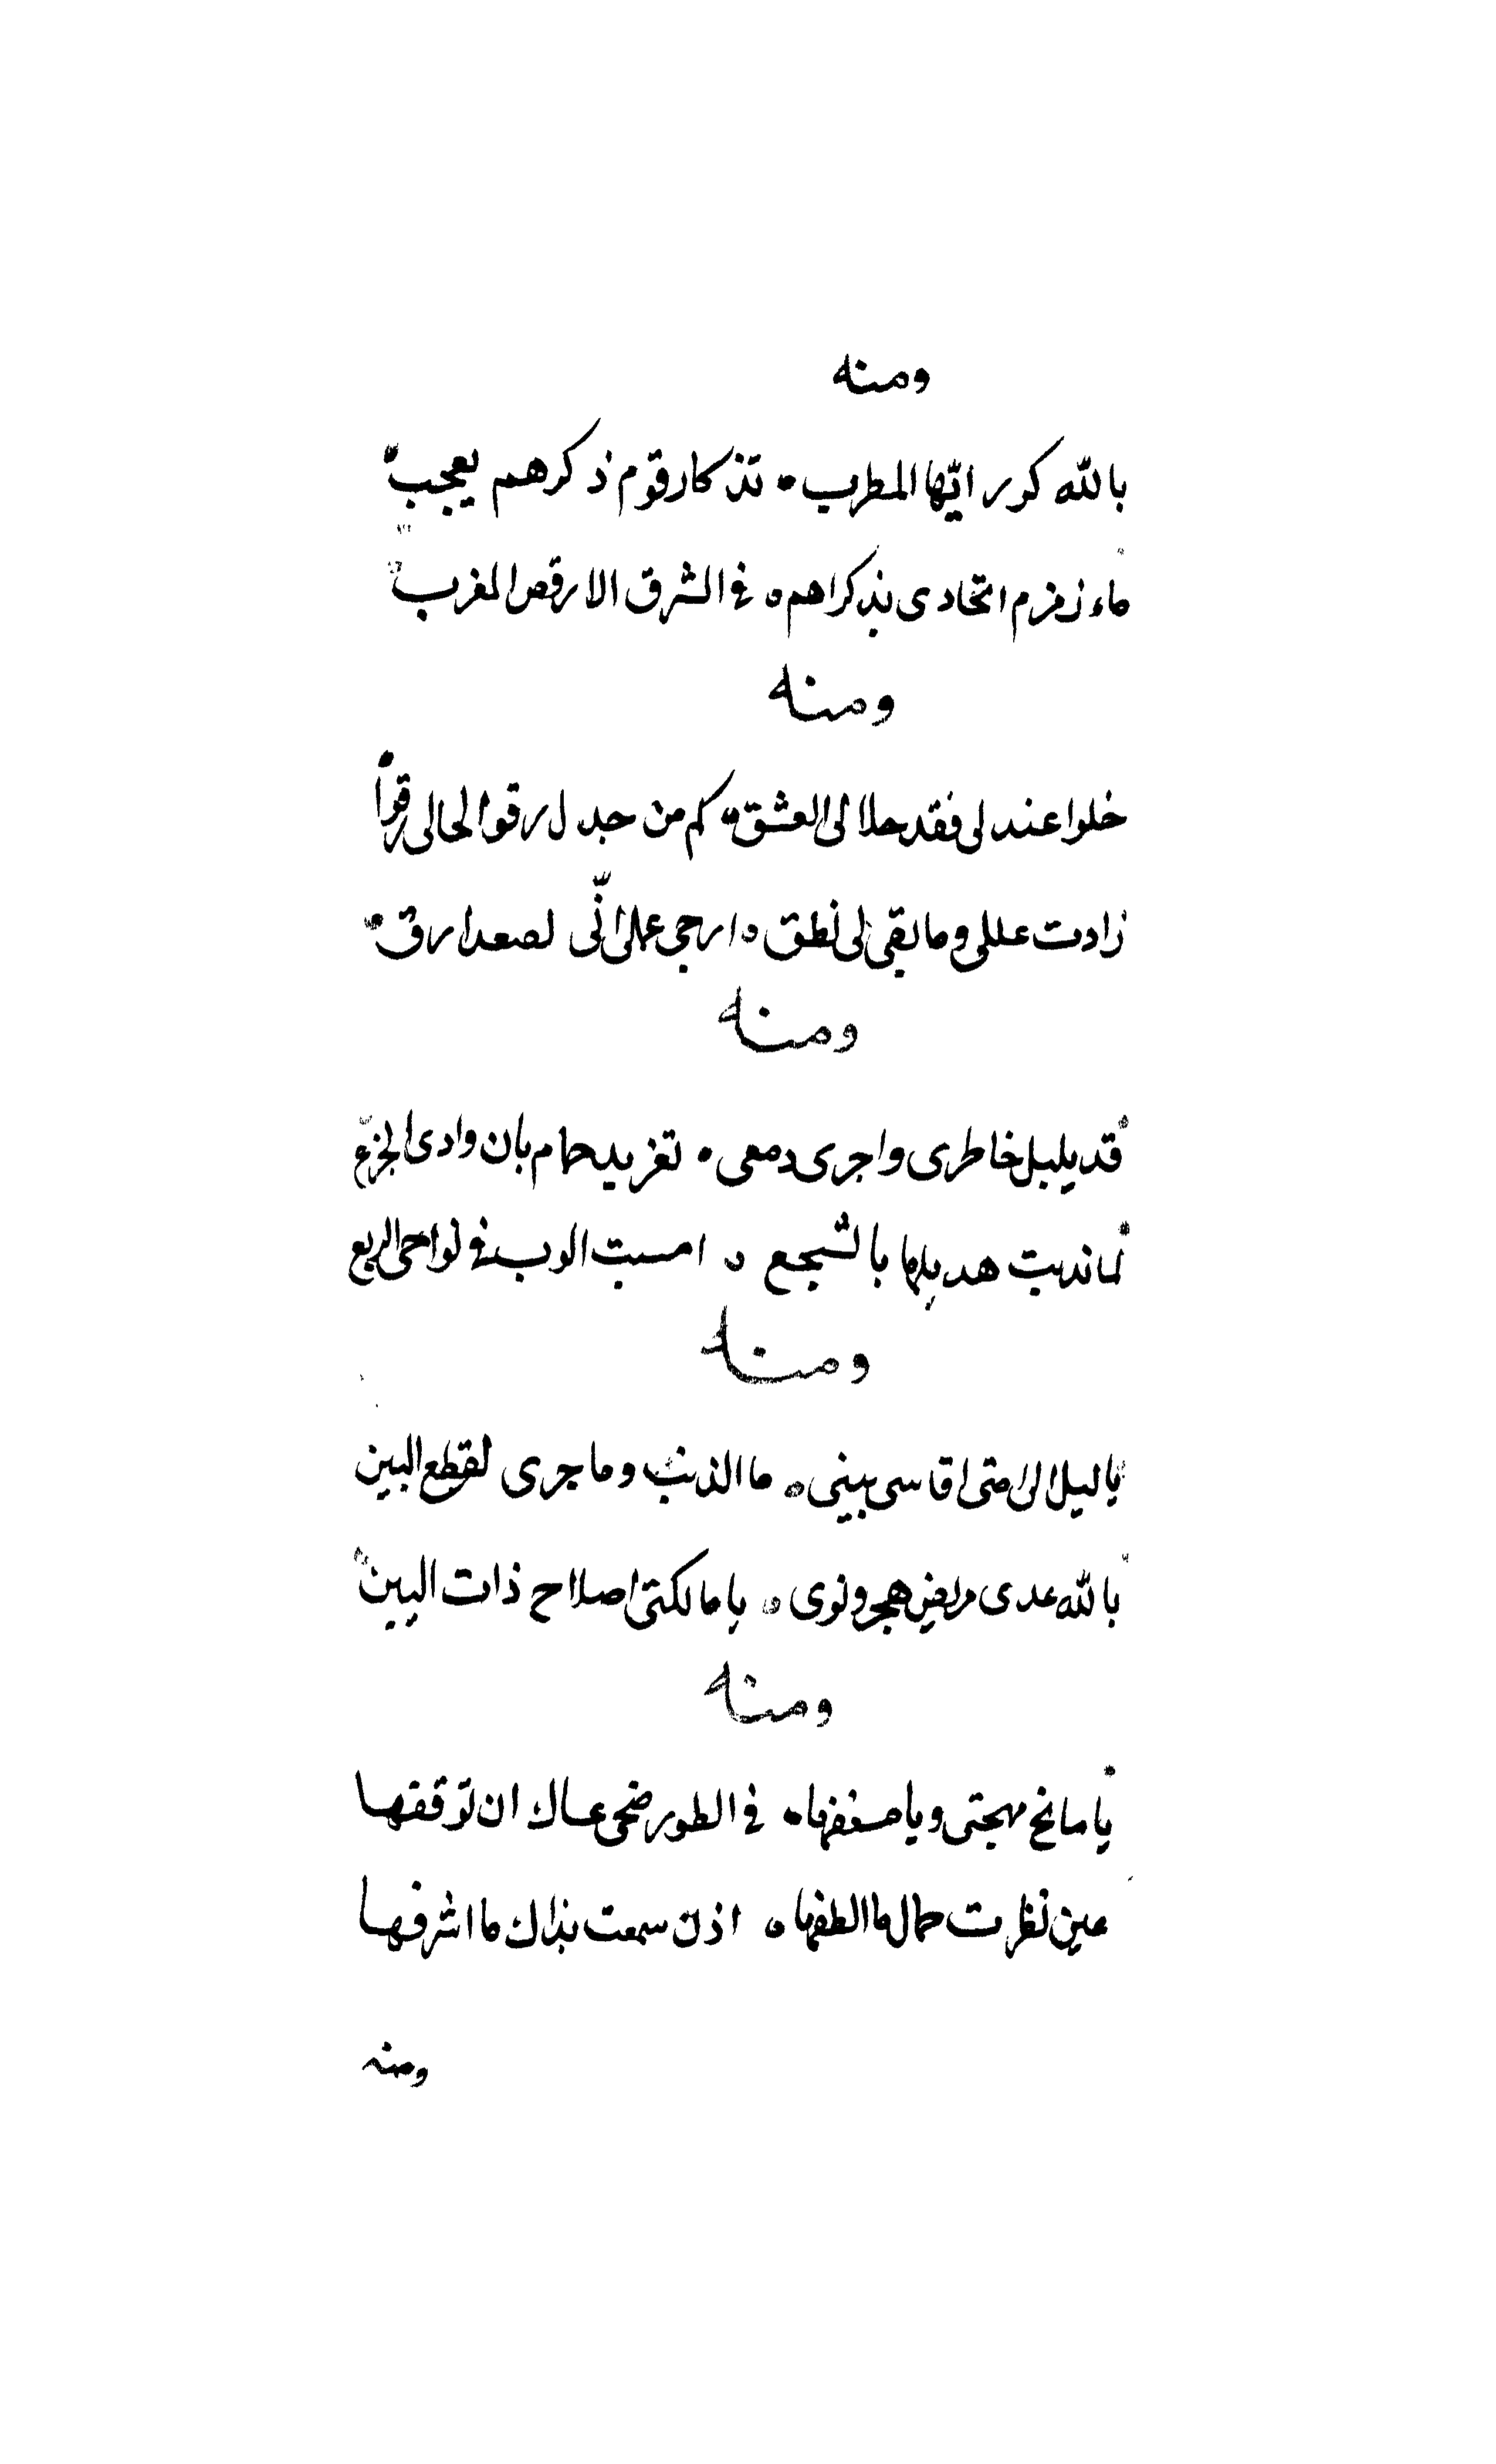 ومنه
بالله كرر ايّها المطرب تذكار قوم ذكرهم يعجب
ما زمزم الحادى بذكراهم في الشرق الا رقص المغرب
ومنه
خلوا عذلى فقد حلا لى العشق كم من جدل رقوا لحالى رقوا
زادت عللى وما بقى لى نطق ارحى على انّى لصعد ارق
ومنه
قد بلبل خاطرى واجرى دمعى تغريد حمام بان وادى الجزع
لما ندبت هديلها بالسجع امست الوب في نواحى الربع
ومنه
يا ليل الى متى اقاسى بينى ما الذنب وما جرى لقطع البين
بالله عدى مريض هجر ونوى يا مالكتى اصلاح ذات البين
ومنه
يا مانح مهجتى ويا متلفها في الطور ضحى عساك ان توقفها
عين نظرت جمال ما الطفها اذن سمعت نداك ما اشرفها
ومنه